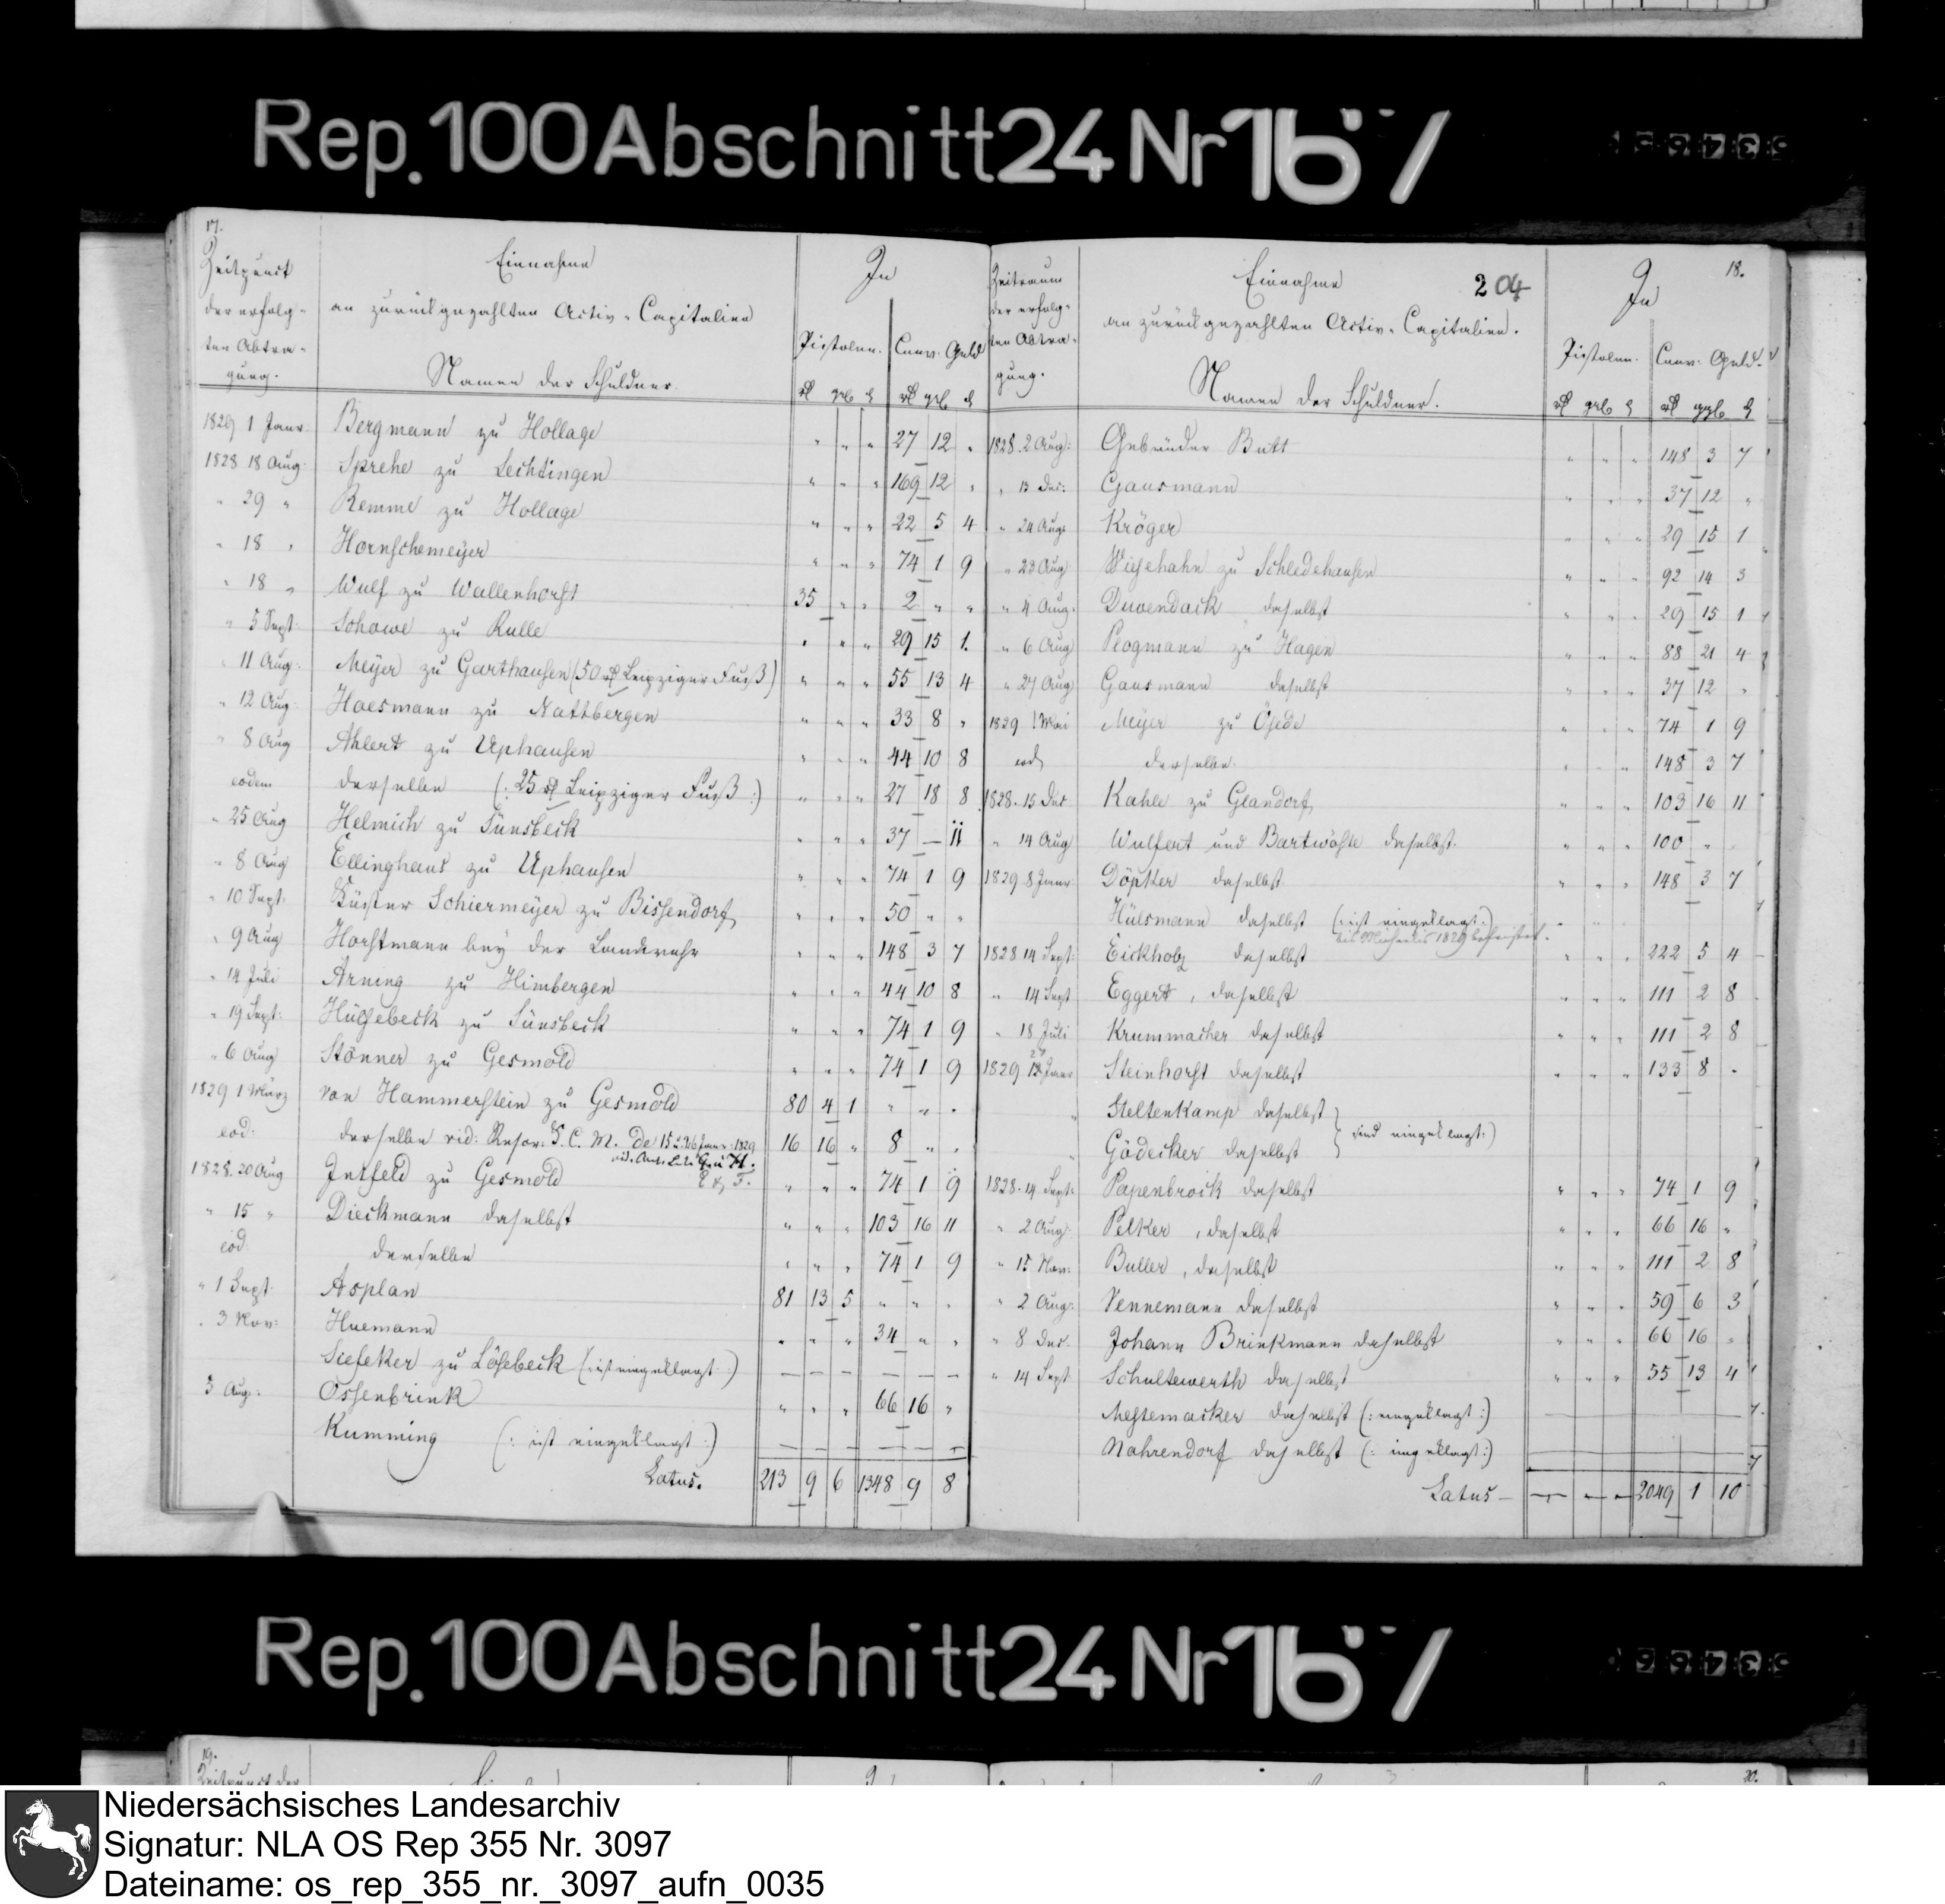 Rep. 100 Abschnitt 24 Nr 167
17.
Zeitpunct
der erfolg-
ten Abtra-
gung.
Einnahme
an zurückgezahlten Activ-Capitalien
Namen der Schuldner.
In
Pistolen. Conv. Geld
1829 1 Janr. Bergmann zu Hollage " " " 27 12 "
1828 18 Aug. Sprehe zu Lechtingen " " " 169 12 "
" 29 " Remme zu Hollage " " " 22 5 4
" 18 " Hornschemeyer " " " 74 1 9
" 18 " Wulf zu Wallenhorst 35 " " 2 " "
" 5 Sept. Schowe zu Rulle " " " 29 15 1.
" 11 Aug. Meyer zu Garthausen (50 rl Leipziger Fuß) " " " 55 13 4
" 12 Aug. Haesmann zu Nattbergen " " " 33 8 "
" 8 Aug Ahlert zu Uphausen " " " 44 10 8
eodem derselbe (: 25 rl Leipziger Fuß :) " " " 27 18 8
" 25 Aug Helmich zu Sünsbeck " " " 37 — 11
" 8 Aug Ellinghaus zu Uphausen " " " 74 1 9
" 10 Sept. Küster Schiermeyer zu Bissendorf " " " 50 " "
" 9 Aug Horstmann bey der Landwehr " " " 148 3 7
" 14 Juli Arning zu Himbergen " " " 44 10 8
" 19 Sept: Hülsebeck zu Sünsbeck " " " 74 1 9
" 6 Aug Stönner zu Gesmold " " " 74 1 9
1829 1 März von Hammerstein zu Gesmold 80 4 1 " " "
eod: derselbe vid: Resor: K. C. M. de 15 Janr: 1829 16 16 " 8 " "
1828. 20 Aug Intfeld zu Gesmold " " " 74 1 9
" 15 " Dieckmann daselbst " " " 103 16 11
eod: derselbe " " " 74 1 9
" 1 Sept. Asplan 81 13 5 " " "
" 3 Nov: Huemann " " " 34 " "
Siefeker zu Lösebeck (: ist eingeklagt :) — — — — — —
5 Aug: Ossenbrink " " " 66 16 "
Kumming (: ist eingeklagt :) — — — — — —
Latus. 213 9 6 1348 9 8
Zeitraum
der erfolg-
ten Abtra-
gung.
Einnahme 204
an zurückgezahlten Activ-Capitalien.
Namen der Schuldner.
In 18.
Pistolen. Conv: Geld.
1828. 2 Aug: Gebrüder Butt " " " 148 3 7
" 13 Dec: Gausmann " " " 37 12 "
" 24 Aug: Kröger " " " 29 15 1
" 23 Aug Wiesehahn zu Schledehausen " " " 92 14 3
" 4 Aug. Duvendack daselbst " " " 29 15 1
" 6 Aug Plogmann zu Hagen " " " 88 21 4
" 27 Aug Gausmann daselbst " " " 37 12 "
1829 1 Mai Meyer zu Ösede " " " 74 1 9
eod derselbe " " " 148 3 7
1828. 15 Dec Kahle zu Glandorf " " " 103 16 11
" 14 Aug Wulfert und Bartwöste daselbst. " " " 100 " "
1829 8 Janr Döpker daselbst " " " 148 3 7
Hülsmann daselbst (: ist eingeklagt :)
bis Michaelis 1829 befristet.
1828 14 Sept: Eickholz daselbst " " " 222 5 4
" 14 Sept Eggert, daselbst " " " 111 2 8
" 18 Juli Krummacher daselbst " " " 111 2 8
1829 Janr Steinhorst daselbst " " " 133 8 "
Steltenkamp daselbst
Gödecker daselbst } sind eingeklagt :)
1828. 14 Sept: Papenbrock daselbst " " " 74 1 9
" 2 Aug: Pelker, daselbst " " " 66 16 "
" 15 Nov: Buller, daselbst " " " 111 2 8
" 2 Aug: Vennemann daselbst " " " 59 6 3
" 8 Dec. Johann Brinkmann daselbst " " " 66 16 "
" 14 Sept Schultewerth daselbst " " " 55 13 4
Mestemacker daselbst (: eingeklagt :)
Nahrendorf daselbst (: eingeklagt :)
Latus — — — — 2049 1 10
Rep. 100 Abschnitt 24 Nr 167
19.
Zeitpunct der
20.
Niedersächsisches Landesarchiv
Signatur: NLA OS Rep 355 Nr. 3097
Dateiname: os_rep_355_nr._3097_aufn_0035